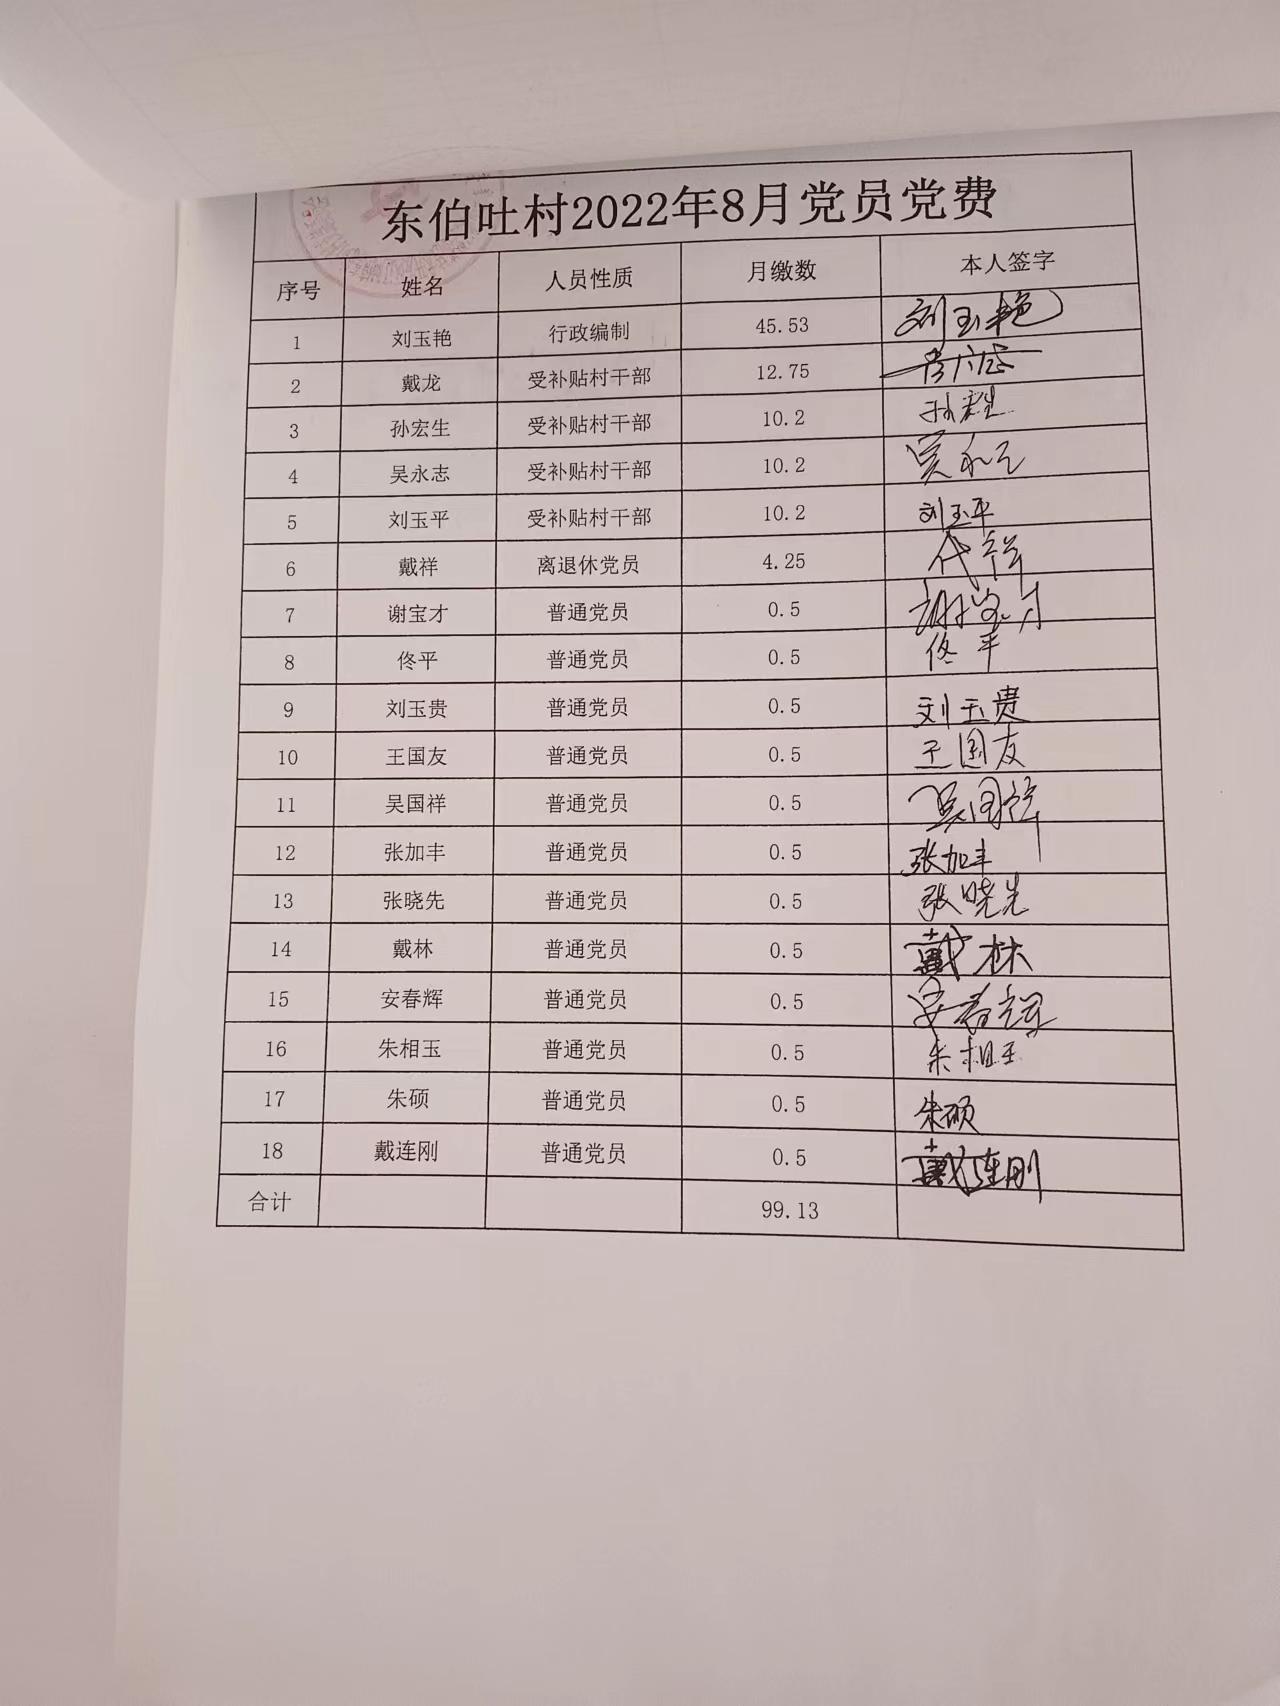 东伯吐村2022年8月党员党费
序号 姓名 人员性质 月缴数 本人签字
1 刘玉艳 行政编制 45.53 刘玉艳
2 戴龙 受补贴村干部 12.75
3 孙宏生 受补贴村干部 10.2
4 吴永志 受补贴村干部 10.2
5 刘玉平 受补贴村干部 10.2 刘玉平
6 戴祥 离退休党员 4.25 代祥
7 谢宝才 普通党员 0.5 谢宝才
8 佟平 普通党员 0.5 佟平
9 刘玉贵 普通党员 0.5 刘玉贵
10 王国友 普通党员 0.5 王国友
11 吴国祥 普通党员 0.5 吴国祥
12 张加丰 普通党员 0.5 张加丰
13 张晓先 普通党员 0.5 张晓先
14 戴林 普通党员 0.5 戴林
15 安春辉 普通党员 0.5 安春辉
16 朱相玉 普通党员 0.5 朱相玉
17 朱硕 普通党员 0.5 朱硕
18 戴连刚 普通党员 0.5 戴连刚
合计 99.13